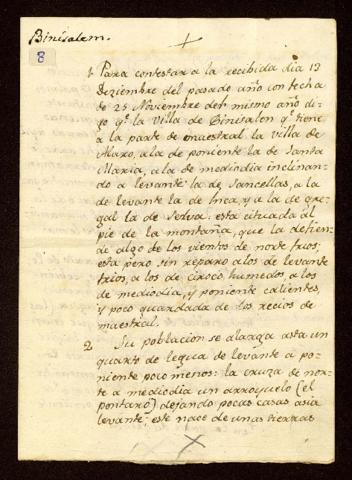 Binisalem.
8
1 Para contestar a la recibida dia 12
Deziembre del pasado año con fecha
de 25 Noviembre del mismo año di-
go qe la villa de Binisalon qe tiene
a la parte de maestral la villa de
Alaro, a la de poniente la de Santa
Maria, a la de mediodia inclinan-
do a levante la de Sancellas, a la
de levante la de Inca, y a la de gre-
gal la de Selva: esta cituada al
pie de la montaña, que la defien-
de algo de los vientos de norte frios;
esta pero sin reparo a los de levante
frios, a los de ciroco humedos, a los
de mediodia, y poniente calientes,
y poco guardada de los recios de
maestral.
2 Su poblacion se alarga asta un
quarto de legua de levante a po-
niente poco menos: la cruza de nor-
te a mediodia un arroyuelo (el
pontarro) dejando pocas casas asia
levante; este nace de unas tierras